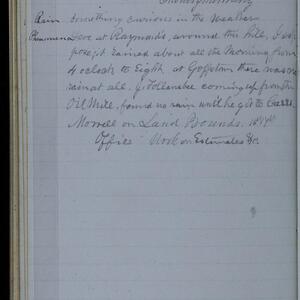 Rain Something curious in the weather
Phenomena here at Raymonds, around the hill, I sup
pose it rained about all the morning from
4 oclock to Eight. at Goffstown there was no
rain at all. J. Follansbee coming up from the
Oil Mill, found no rain until he got to
Morrell on Laird Bounds.
Office Work on Estimates &c.